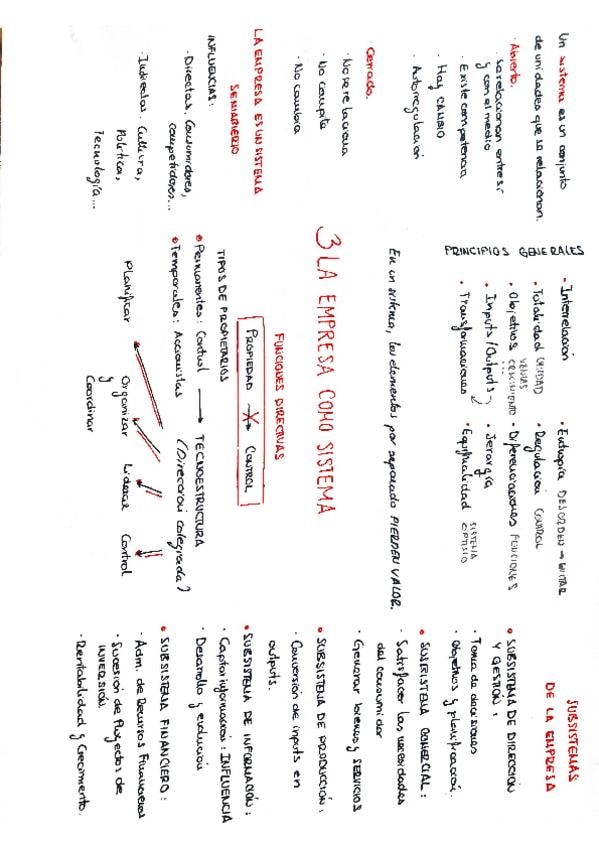 Un sistema es un conjunto
de unidades que se relacionan.
· Abierto.
· Se relacionan entre sí
y con el medio
· Existe competencia
· Hay CAMBIO
· Autorregulación
· Cerrado.
· No se relaciona
· No compite
· No cambia
LA EMPRESA ES UN SISTEMA
SEMIABIERTO
INFLUENCIAS:
· Directas. Consumidores,
competidores...
· Indirectas. Cultura,
Política,
Tecnología...
PRINCIPIOS GENERALES
· Interrelación
· Totalidad UNIDAD
· Objetivos VENTAS CRECIMIENTO ...
· Inputs/Outputs
· Transformaciones
· Entropía DESORDEN → EVITAR
· Regulación CONTROL
· Diferenciaciones FUNCIONES
· Jerarquía
· Equifinalidad SISTEMA ÓPTIMO
En un sistema, los elementos por separado PIERDEN VALOR.
3 LA EMPRESA COMO SISTEMA
FUNCIONES DIRECTIVAS
PROPIEDAD → CONTROL
TIPOS DE PROPIETARIOS
• Permanentes: Control → TECNOESTRUCTURA
• Temporales: Accionistas (Dirección colegiada)
Planificar
Organizar
y
Coordinar
Liderar
Control
SUBSISTEMAS
DE LA EMPRESA
• SUBSISTEMA DE DIRECCIÓN
Y GESTIÓN:
· Toma de decisiones
· Objetivos y planificación.
• SUBSISTEMA COMERCIAL:
· Satisfacer las necesidades
del consumidor
· Generar bienes y SERVICIOS
• SUBSISTEMA DE PRODUCCIÓN:
· Conversión de inputs en
outputs.
• SUBSISTEMA DE INFORMACIÓN:
· Captar información: INFLUENCIA
· Desarrollo y evolución
• SUBSISTEMA FINANCIERO:
· Adm. de Recursos Financieros
· Sucesión de Proyectos de
INVERSIÓN
· Rentabilidad y Crecimiento.